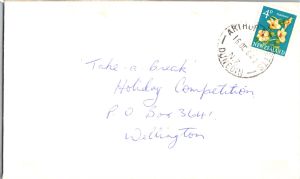 4D
NEW ZEALAND
ARTHUR
DUNEDIN
'Take a break'
Holiday Competition
P O Box 3641
Wellington